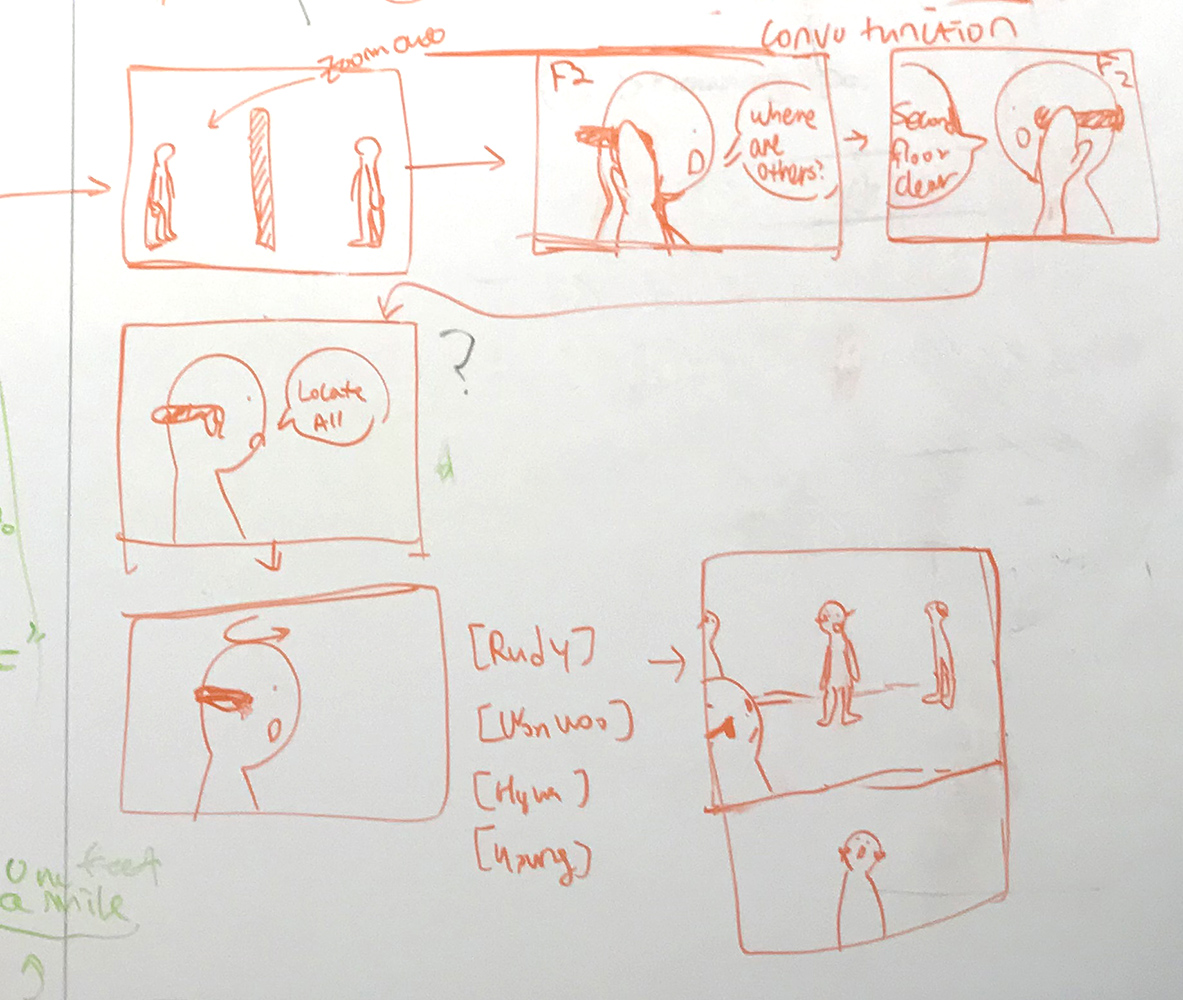 Zoom out
Convo function
F2
Where
are
others?
F2
Second
floor
clear
?
Locate
All
[Rudy]
[Wonwoo]
[Hyun]
[Young]
One feet
a mile